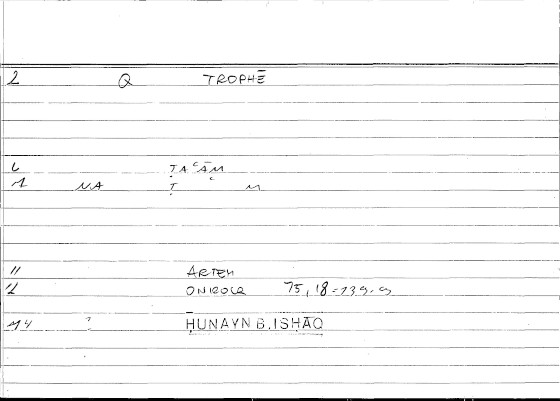 2 Q TROPHĒ
6 ṬAʿĀM
1 NA Ṭ ʿ M
11 ARTEM
12 ONIROCR 75,18-
14 ? ḤUNAYN B. ISḤĀQ